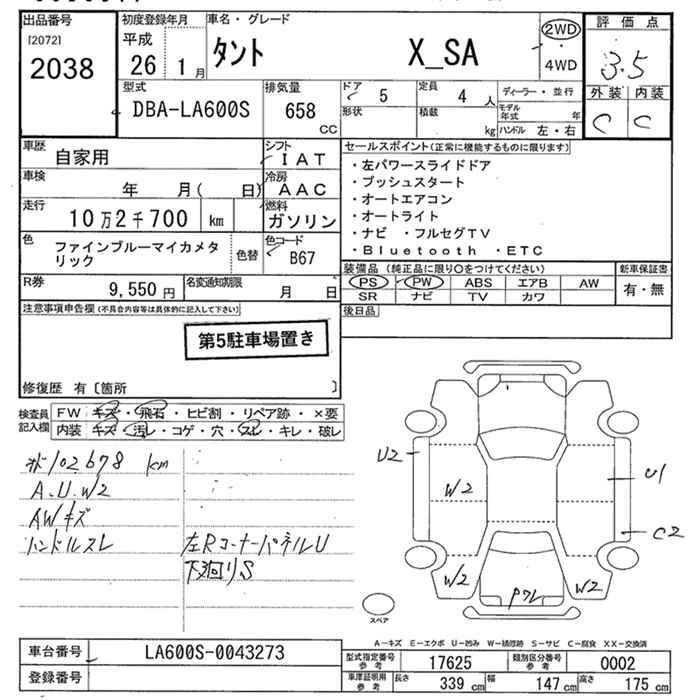 出品番号
[2072]
2038
初度登録年月
平成
26 1 月
車名・グレード
タント X_SA
2WD
・
4WD
評価点
3.5
外装 内装
C C
型式
DBA-LA600S
排気量
658 CC
ドア 5
形状
定員 4 人
積載 kg
ディーラー・並行
モデル年式 年
ハンドル 左・右
車歴
自家用
シフト
I A T
車検
年 月( 日)
冷房
A A C
走行
10万2千700 km
燃料
ガソリン
色
ファインブルーマイカメタ
リック
色替
色コード
B67
R券
9,550 円
名変通知期限
月 日
セールスポイント(正常に機能するものに限ります)
・左パワースライドドア
・プッシュスタート
・オートエアコン
・オートライト
・ナビ ・フルセグTV
・Bluetooth ・ETC
装備品 (純正品に限り○をつけてください)
PS PW ABS エアB AW
SR ナビ TV カワ
新車保証書
有・無
後日品
注意事項申告欄(不具合内容等は具体的に記入して下さい)
第5駐車場置き
修復歴 有〔箇所 〕
検査員
記入欄
FW キズ・飛石・ヒビ割・リペア跡・×要
内装 キズ・汚レ・コゲ・穴・スレ・キレ・破レ
102678 km
A.U.W2
AWキズ
ハンドルスレ
左RコーナーパネルU
下廻りS
U2
W2
U1
C2
W2
W2
スペア
A-キズ E-エクボ U-凹み W-補修跡 S-サビ C-腐食 XX-交換済
車台番号
LA600S-0043273
登録番号
型式指定番号
参考
17625
類別区分番号
参考
0002
車庫証明用
参考
長さ 339 cm
幅 147 cm
高さ 175 cm